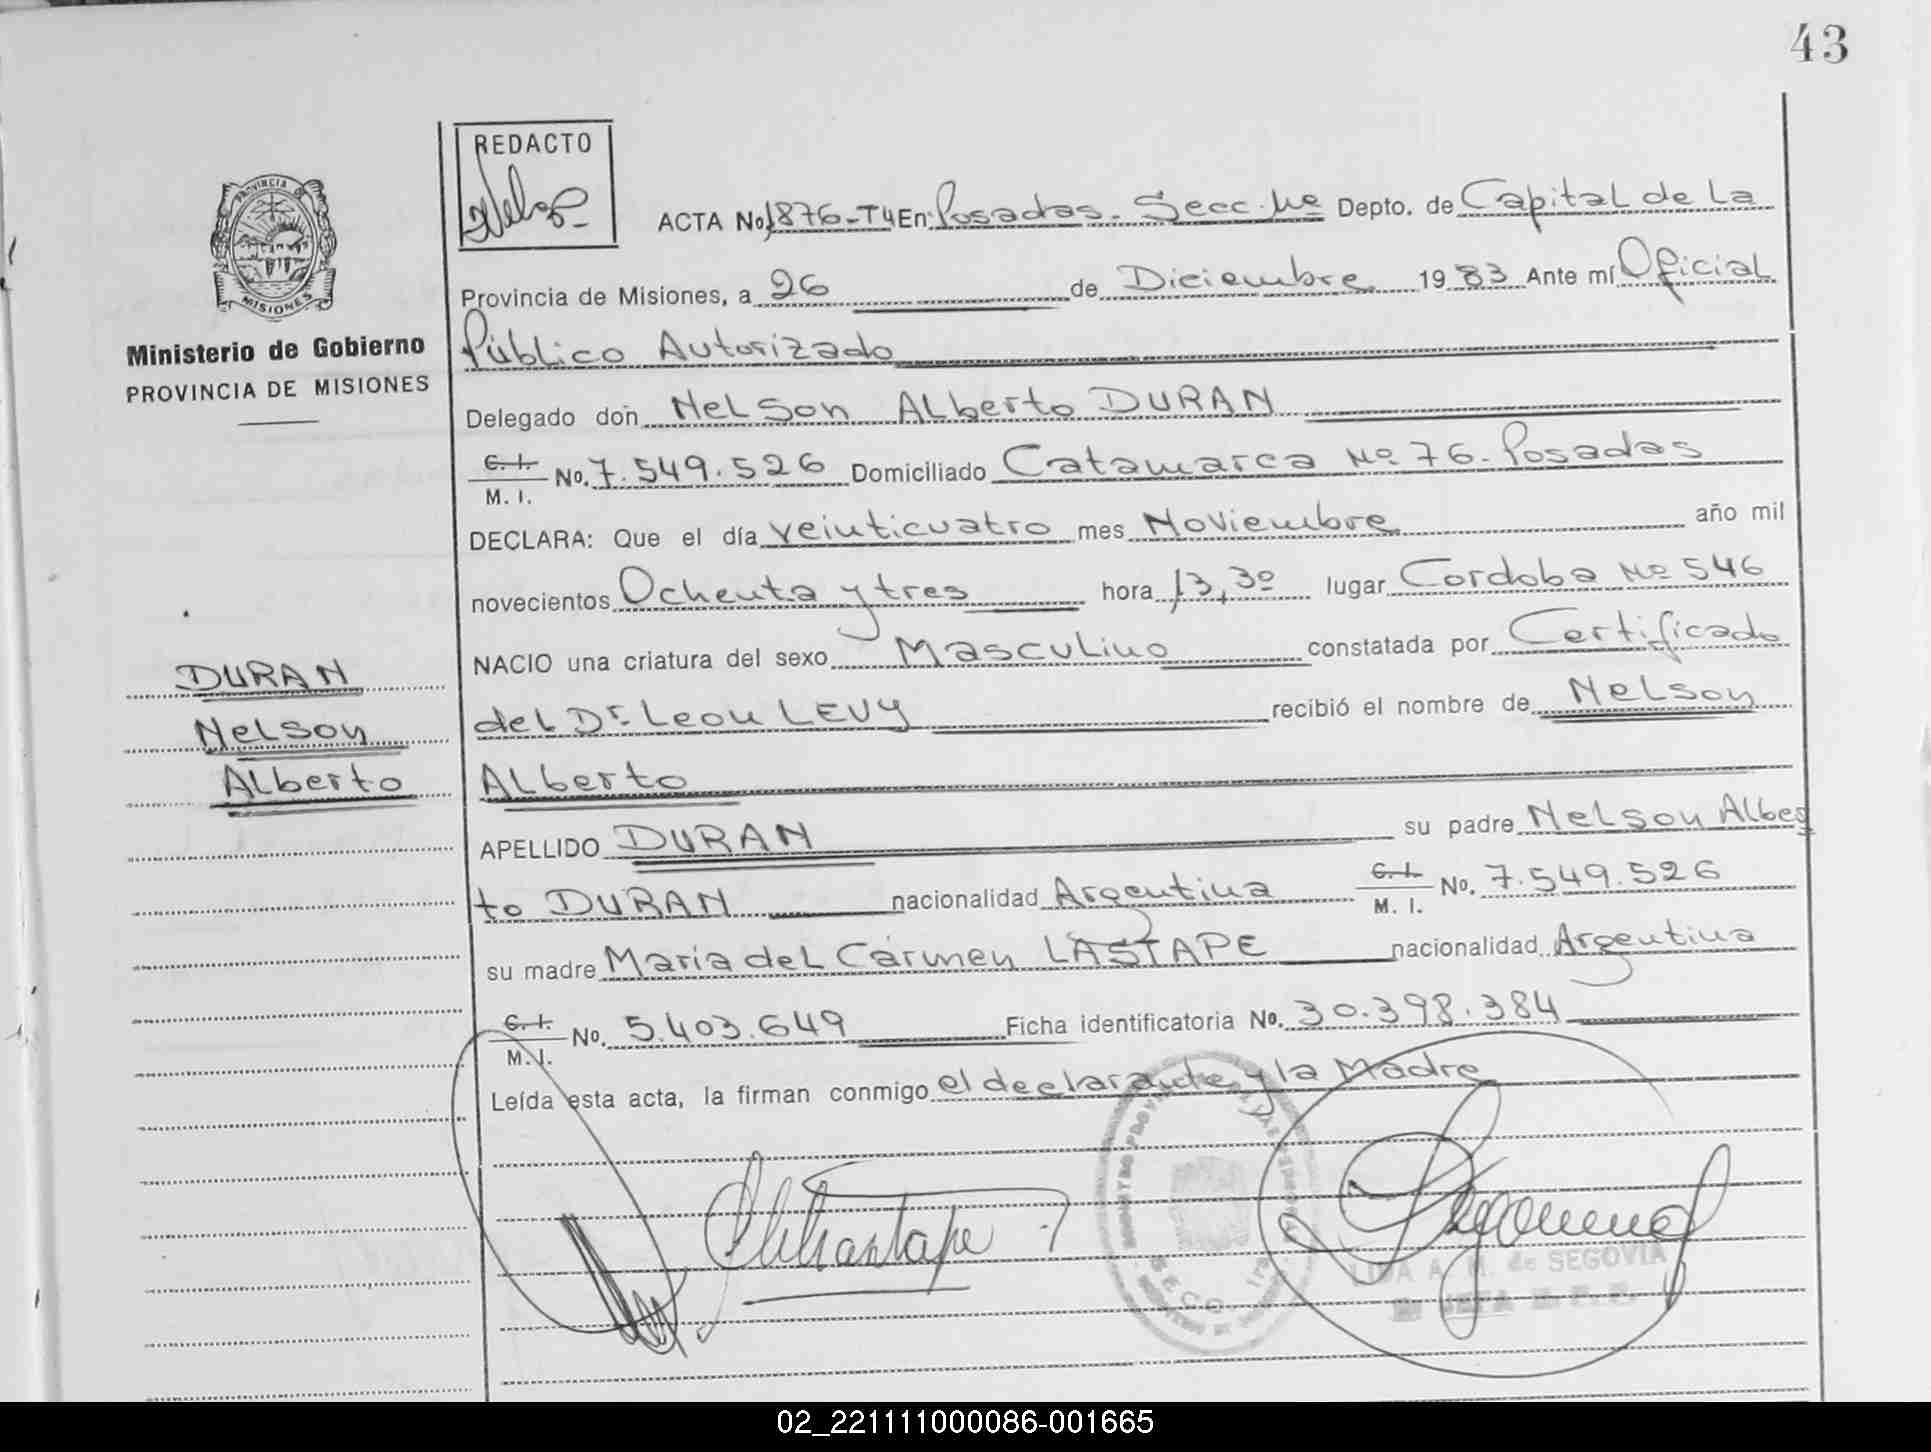 43
REDACTO
PROVINCIA DE
MISIONES
Ministerio de Gobierno
PROVINCIA DE MISIONES
ACTA No 1876-T4 En Posadas. Secc. 1ra Depto. de Capital de La
Provincia de Misiones, a 26 de Diciembre 1983 Ante mí Oficial
Público Autorizado
Delegado don Nelson Alberto DURAN
C. I. M. I. No. 7.549.526 Domiciliado Catamarca Nº 76. Posadas
DECLARA: Que el día veinticuatro mes Noviembre año mil
novecientos Ochenta y tres hora 13,30 lugar Cordoba Nº 546
NACIO una criatura del sexo Masculino constatada por Certificado
del Dr. Leon LEVY recibió el nombre de Nelson
Alberto
APELLIDO DURAN su padre Nelson Alber
to DURAN nacionalidad Argentina C. I. M. I. No. 7.549.526
su madre María del Carmen LASTAPE nacionalidad Argentina
C. I. M. I. No. 5.403.649 Ficha identificatoria No. 30.398.384
Leída esta acta, la firman conmigo el declarante y la Madre
DURAN
Nelson
Alberto
A. M. de SEGOVIA
02_221111000086-001665